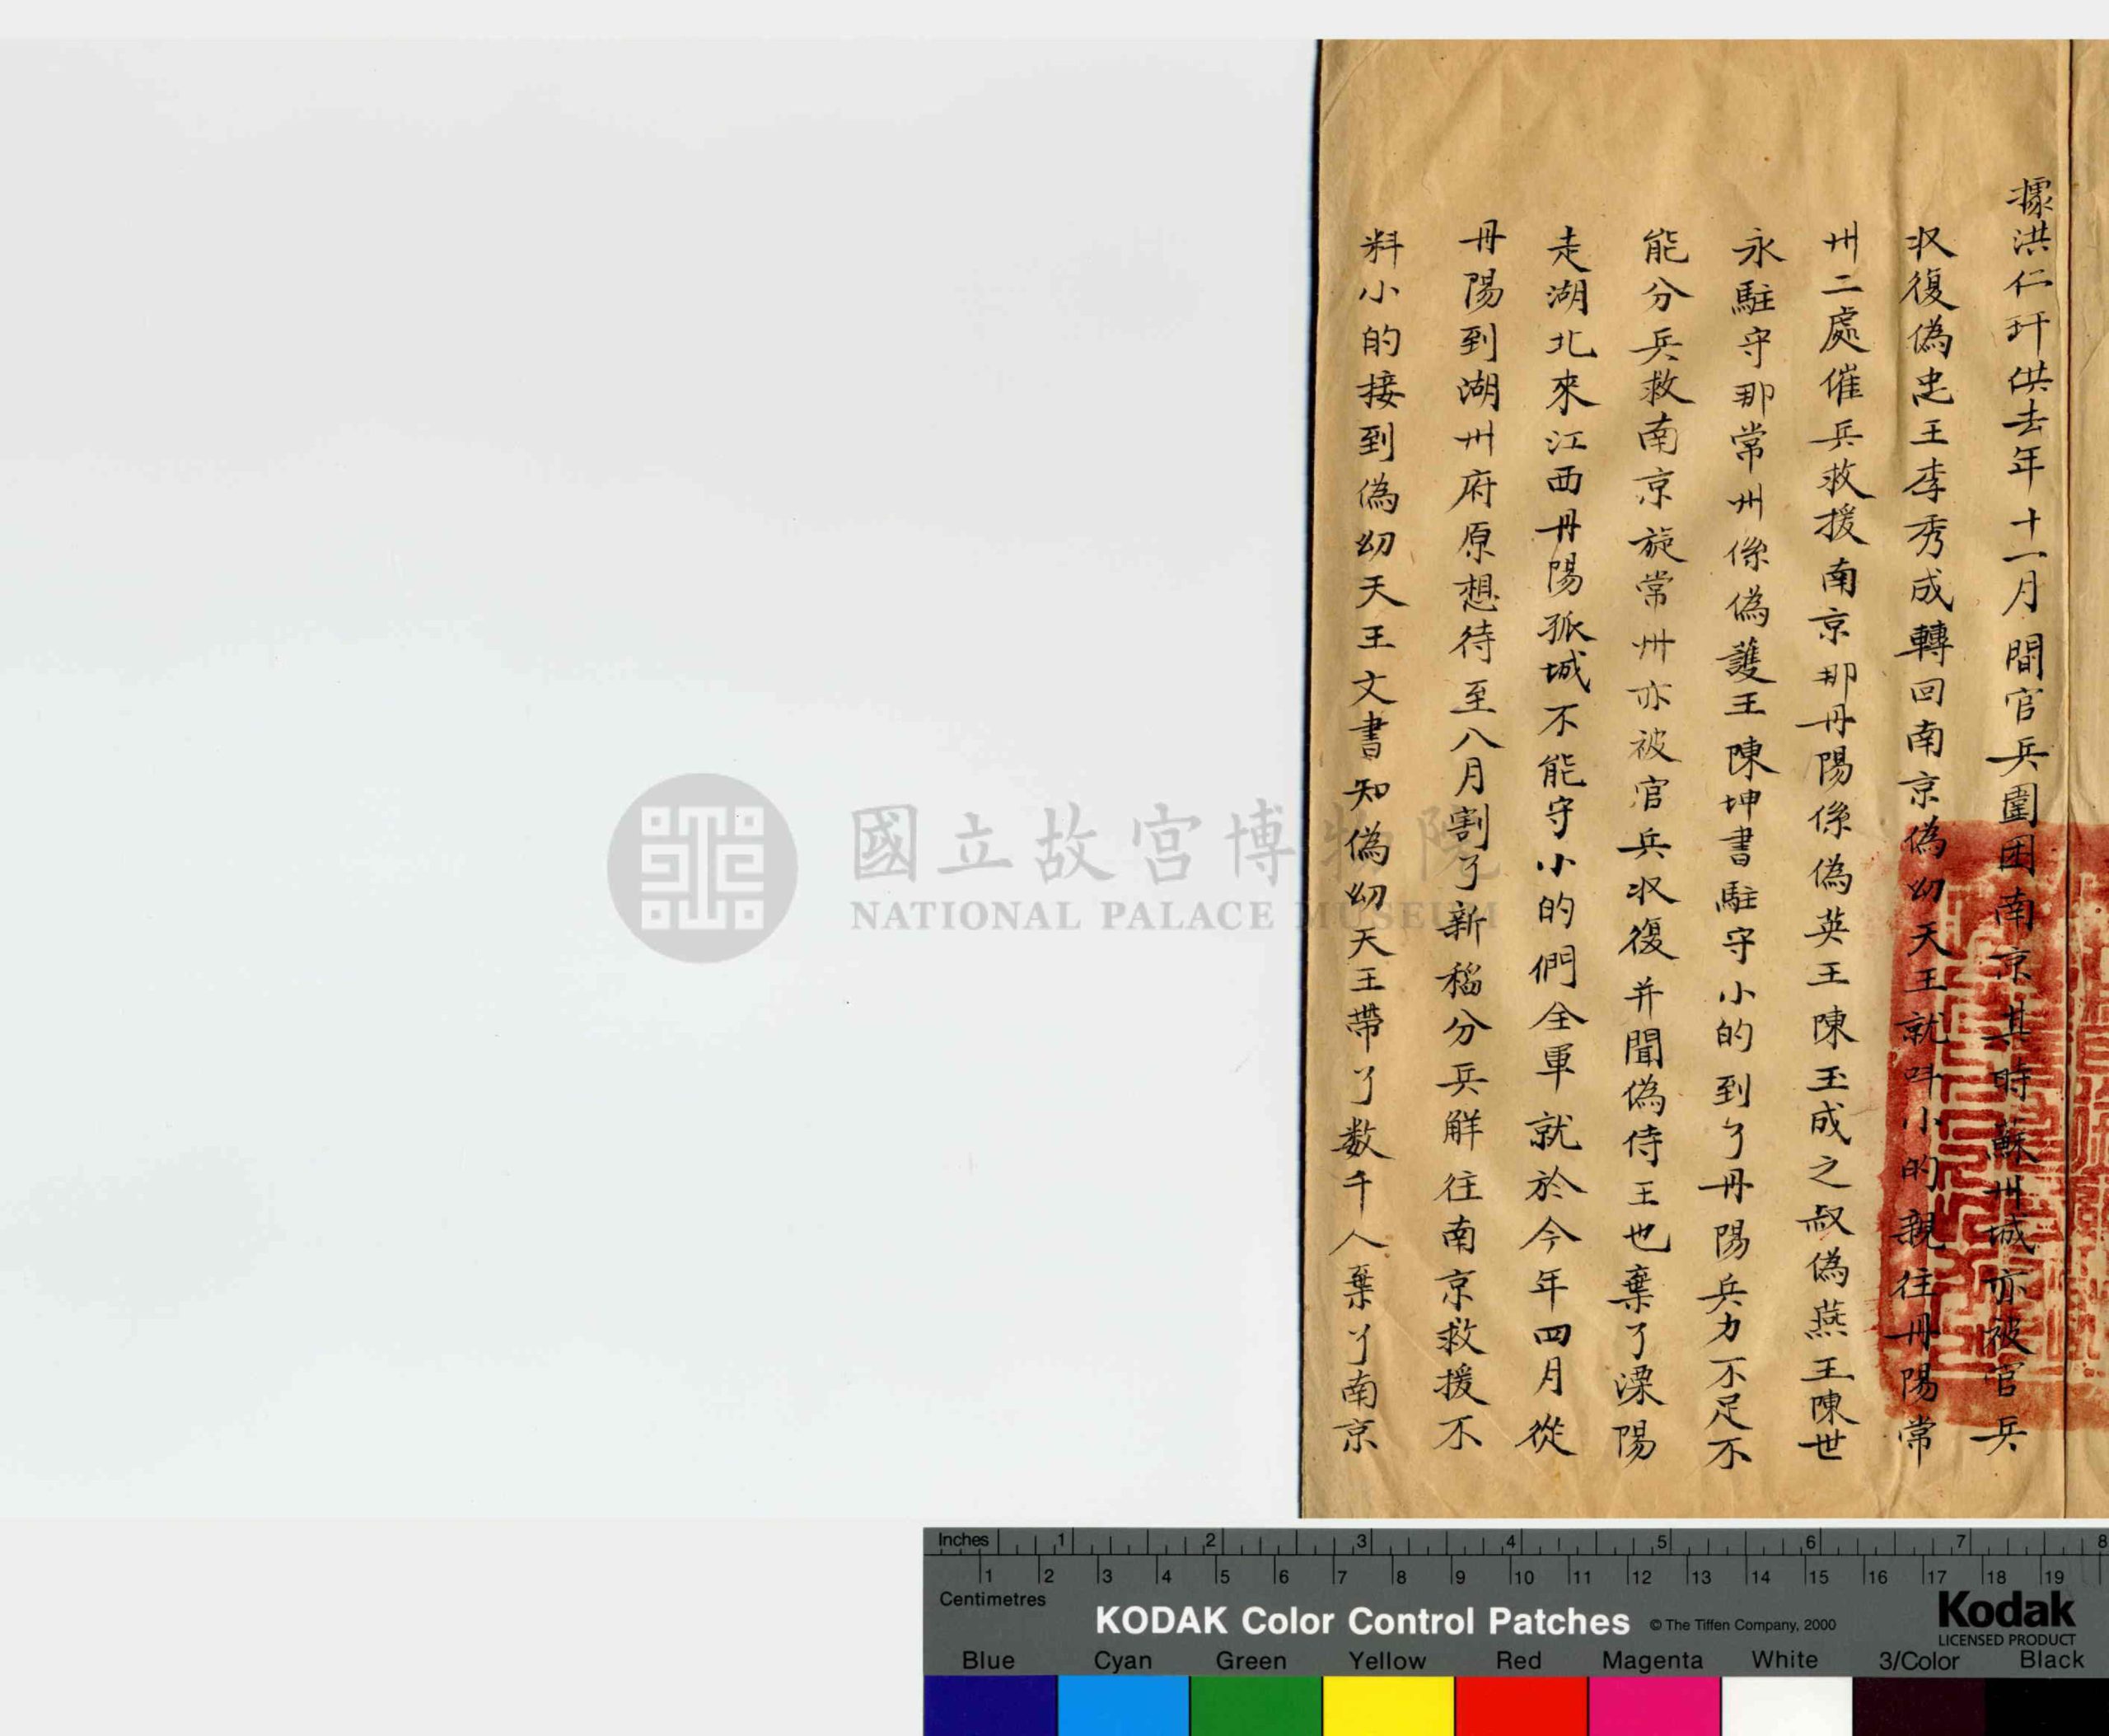 據洪仁玕供去年十一月間官兵圍困南京其時蘇州城亦被官兵
収復偽忠王李秀成轉回南京偽幼天王就呌小的親往丹陽常
州二處催兵救援南京那丹陽係偽英王陳玉成之叔偽燕王陳世
永駐守那常州係偽護王陳坤書駐守小的到了丹陽兵力不足不
能分兵救南京旋常州亦被官兵収復并聞偽侍王也棄了溧陽
走湖北來江西丹陽孤城不能守小的們全軍就於今年四月從
丹陽到湖州府原想待至八月割了新稻分兵解往南京救援不
料小的接到偽幼天王文書知偽幼天王帶了数千人棄了南京
國立故宮博物院
NATIONAL PALACE MUSEUM
Inches 1 2 3 4 5 6 7 8
1 2 3 4 5 6 7 8 9 10 11 12 13 14 15 16 17 18 19
Centimetres
KODAK Color Control Patches © The Tiffen Company, 2000
Kodak
LICENSED PRODUCT
Blue Cyan Green Yellow Red Magenta White 3/Color Black